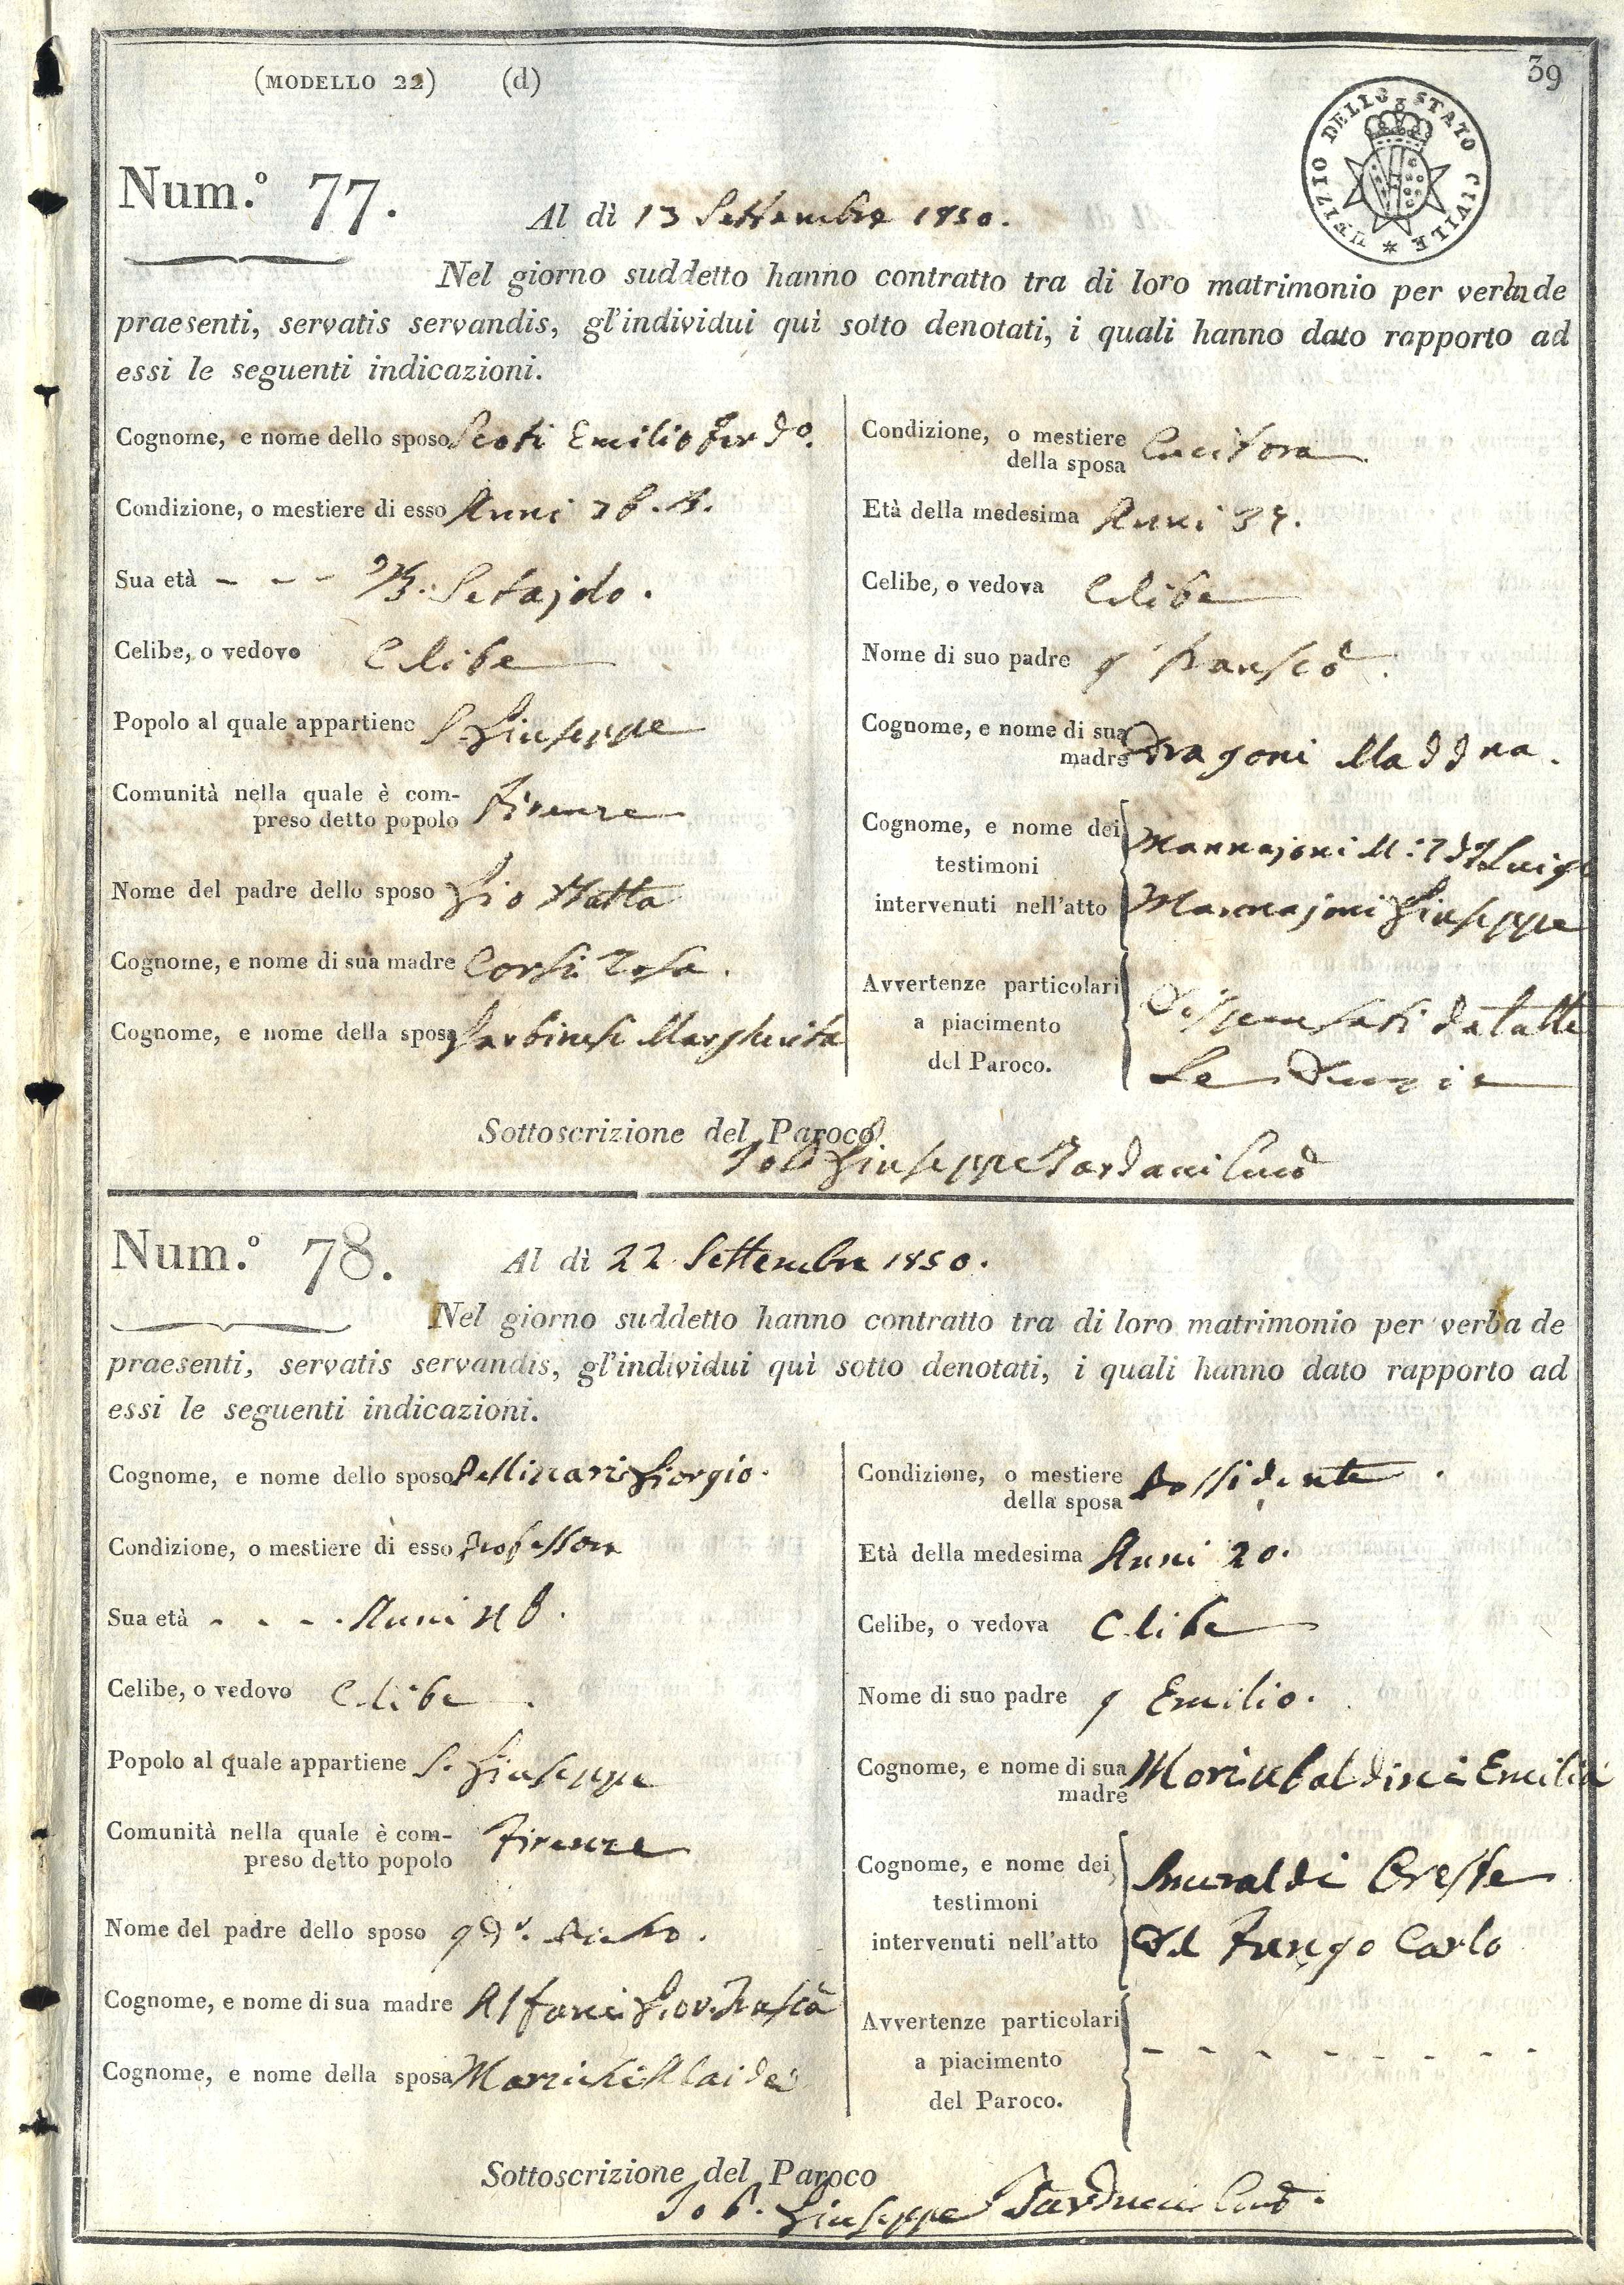 (MODELLO 22) (d)
39
UFIZIO DELLO STATO CIVILE *
Num.º 77.
Al dì 13 Settembre 1850.
Nel giorno suddetto hanno contratto tra di loro matrimonio per verba de
praesenti, servatis servandis, gl'individui quì sotto denotati, i quali hanno dato rapporto ad
essi le seguenti indicazioni.
Cognome, e nome dello sposo Scoti Emilio Ferdo.
Condizione, o mestiere di esso Anni
Sua età - - - Setajolo.
Celibe, o vedovo Celibe
Popolo al quale appartiene S. Giuseppe
Comunità nella quale è com-
preso detto popolo Firenze
Nome del padre dello sposo Gio Batta
Cognome, e nome di sua madre Corsi Rosa.
Cognome, e nome della sposa Garbinesi Margherita
Condizione, o mestiere
della sposa Cucitora
Età della medesima Anni
Celibe, o vedova Celibe
Nome di suo padre q Fransco.
Cognome, e nome di sua
madre Dragoni Maddna.
Cognome, e nome dei
testimoni
intervenuti nell'atto
Mannajoni Luigi
Mannajoni Giuseppe
Avvertenze particolari
a piacimento
del Paroco.
Dispensati da tutte
Le Denunzie
Sottoscrizione del Paroco
Giuseppe Tarducci Curo
Num.º 78.
Al dì 22 Settembre 1850.
Nel giorno suddetto hanno contratto tra di loro matrimonio per verba de
praesenti, servatis servandis, gl'individui quì sotto denotati, i quali hanno dato rapporto ad
essi le seguenti indicazioni.
Cognome, e nome dello sposo Pellizzari Giorgio.
Condizione, o mestiere di esso Professore
Sua età - - - - Anni
Celibe, o vedovo Celibe.
Popolo al quale appartiene S. Giuseppe
Comunità nella quale è com-
preso detto popolo Firenze
Nome del padre dello sposo q
Cognome, e nome di sua madre Alfani
Cognome, e nome della sposa
Condizione, o mestiere
della sposa Possidente.
Età della medesima Anni 20.
Celibe, o vedova Celibe
Nome di suo padre q Emilio.
Cognome, e nome di sua
madre Emilia
Cognome, e nome dei
testimoni
intervenuti nell'atto
Smeraldi Oreste
Del Fungo Carlo
Avvertenze particolari
a piacimento
del Paroco.
- - - - - - - -
Sottoscrizione del Paroco
Giuseppe Tarducci Curo.